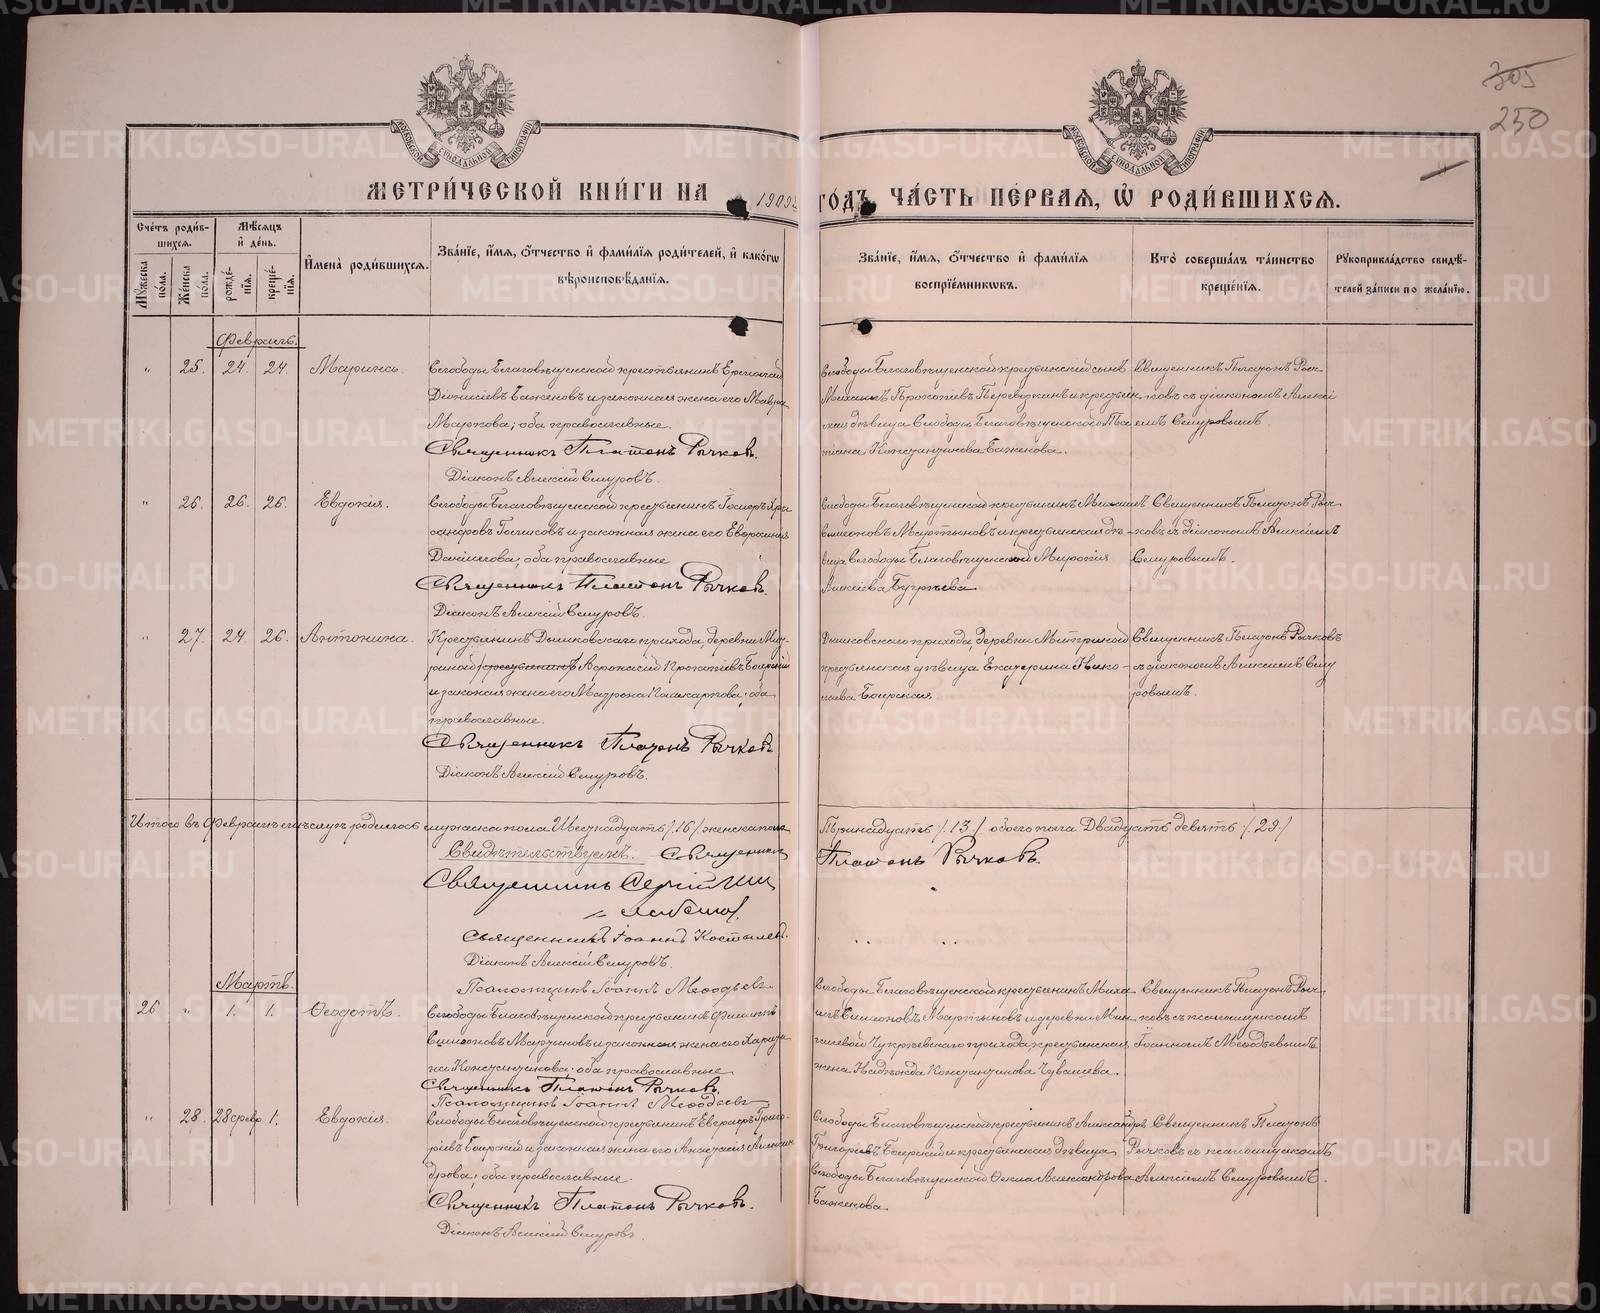 305
250
МЕТРИ́ЧЕСКОЙ КНИ́ГИ НА 1909 ГО́ДЪ, ЧА́СТЬ ПЕ́РВАЯ, Ѡ РОДИ́ВШИХСЯ.
МОСКОВСКОЙ СѴНОДАЛЬНОЙ ТИПОГРАФІИ
МОСКОВСКОЙ СѴНОДАЛЬНОЙ ТИПОГРАФІИ
Сче́тъ роди́в-
шихся.
Му́жеска по́ла.
Же́нска по́ла.
Мѣ́сяцъ
и҆ де́нь.
рожде́-
нїѧ.
креще́-
нїѧ.
И҆мена̀ роди́вшихся.
Зва́нїе, и҆́мя, ѻ҆́тчество и҆ фами́лїя роди́телей, и҆ како́гѡ
вѣроисповѣ́данїя.
Зва́нїе, и҆́мя, ѻ҆́тчество и҆ фами́лїя
воспрїе́мникѡвъ.
Кто̀ соверша́лъ та́инство
креще́нїя.
Рꙋкоприкла́дство свидѣ́-
телей за́писи по жела́нїю.
Февраль.
" 25. 24. 24. Марина.
Слободы Благовѣщенской крестьянинъ Ермолай
Діонисіевъ Баженовъ и законная жена его Мавра
Маркова; оба православные.
Священникъ Платонъ Рычковъ.
Діаконъ Алексій Сетуровъ.
Слободы Благовѣщенской крестьянскій сынъ
Михаилъ Прокопіевъ Перевозкинъ и крестьян-
ская дѣвица Слободы Благовѣщенской Та-
тіана Константинова Баженова.
Священникъ Платонъ Рыч-
ковъ съ діакономъ Алексі-
емъ Сетуровымъ.
" 26. 26. 26. Евдокія.
Слободы Благовѣщенской крестьянинъ
и законная жена его Евфросинія
Даніилова, оба православные
Священникъ Платонъ Рычковъ.
Діаконъ Алексій Сетуровъ.
Слободы Благовѣщенской крестьянинъ
Симеоновъ Мартыновъ и крестьянская дѣ-
вица Слободы Благовѣщенской
Алексіева
Священникъ Платонъ Рыч-
ковъ съ діакономъ Алексіемъ
Сетуровымъ.
" 27. 24. 26. Антонина.
Крестьянинъ прихода, деревни
и законная жена его Матрона оба
православные.
Священникъ Платонъ Рычковъ
Діаконъ Алексій Сетуровъ.
прихода, деревни
крестьянская дѣвица Екатерина Нико-
лаева Боярская
Священникъ Платонъ Рычковъ
съ діакономъ Алексіемъ Сету-
ровымъ.
Итого въ Февралѣ мѣсяцѣ родилось мужеска пола Шестнадцать /16/ женска пола
Тринадцать /13/ обоего пола Двадцать девять /29/
Свидѣтельствуемъ. Священникъ
Платонъ Рычковъ.
Священникъ Сергій
Священникъ Іоаннъ Костылевъ.
Діаконъ Алексій Сетуровъ.
Псаломщикъ Іоаннъ Меѳодьевъ
Мартъ.
26 " 1. 1. Ѳеодотъ.
Слободы Благовѣщенской крестьянинъ Филиппъ
Симеоновъ Мартыновъ и законная жена его Харити-
на Константинова, оба православные
Священникъ Платонъ Рычковъ.
Псаломщикъ Іоаннъ Меѳодьевъ
Слободы Благовѣщенской крестьянинъ Миха-
илъ Симеоновъ Мартыновъ и деревни
прихода крестьянская
жена Надежда Константинова Чувашева.
Священникъ Платонъ Рыч-
ковъ съ псаломщикомъ
Іоанномъ Меѳодьевымъ
" 28. 28 февр. 1. Евдокія.
Слободы Благовѣщенской крестьянинъ Евграфъ Григо-
ріевъ Боярскій и законная жена его Анастасія Алексан-
дрова, оба православные.
Священникъ Платонъ Рычковъ.
Діаконъ Алексій Сетуровъ.
Слободы Благовѣщенской крестьянинъ Александръ
Григоріевъ Боярскій и крестьянская дѣвица
Слободы Благовѣщенской Ѳекла Александрова
Баженова.
Священникъ Платонъ
Рычковъ съ псаломщикомъ
Алексіемъ Сетуровымъ.
METRIKI.GASO-URAL.RU